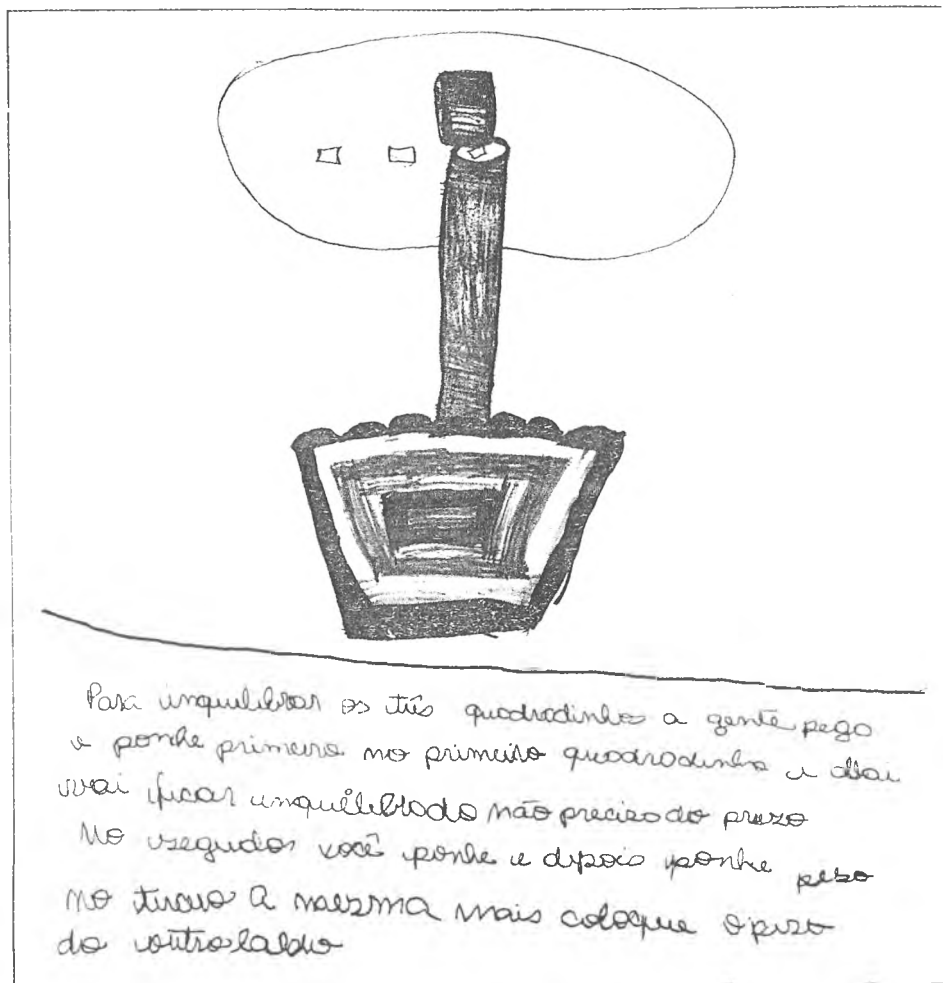 Para inquilibrar os três quadradinhos a gente pega
e ponhe primeiro no primeiro quadradinho e daí
vai ficar inquilibrado não precisa do prezo
No segudos você ponhe e dipois ponhe pezo
no tirceiro a mesma mais coloque o pezo
do outro laldo